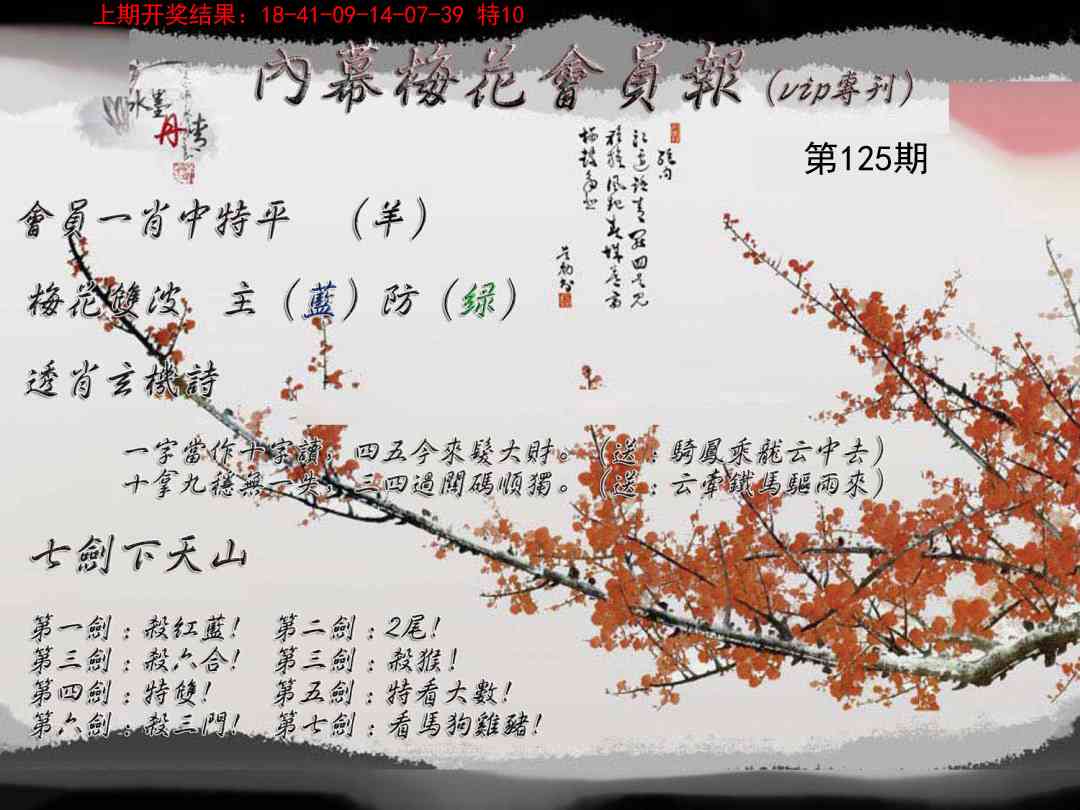 上期开奖结果：18-41-09-14-07-39 特10
內幕梅花會員報（vip專刊）
水墨
丹青
第125期
會員一肖中特平 （羊）
梅花雙波 主（藍）防（绿）
透肖玄機詩
一字當作十字讀，四五今來髮大財。（送：騎鳳乘龍云中去）
十拿九穩無一失，三四過閘碼順獨。（送：云牽鐵馬驅雨來）
七劍下天山
第一劍：殺红藍！ 第二劍：2尾！
第三劍：殺六合！ 第三劍：殺猴！
第四劍：特雙！ 第五劍：特看大數！
第六劍：殺三門！ 第七劍：看馬狗雞豬！